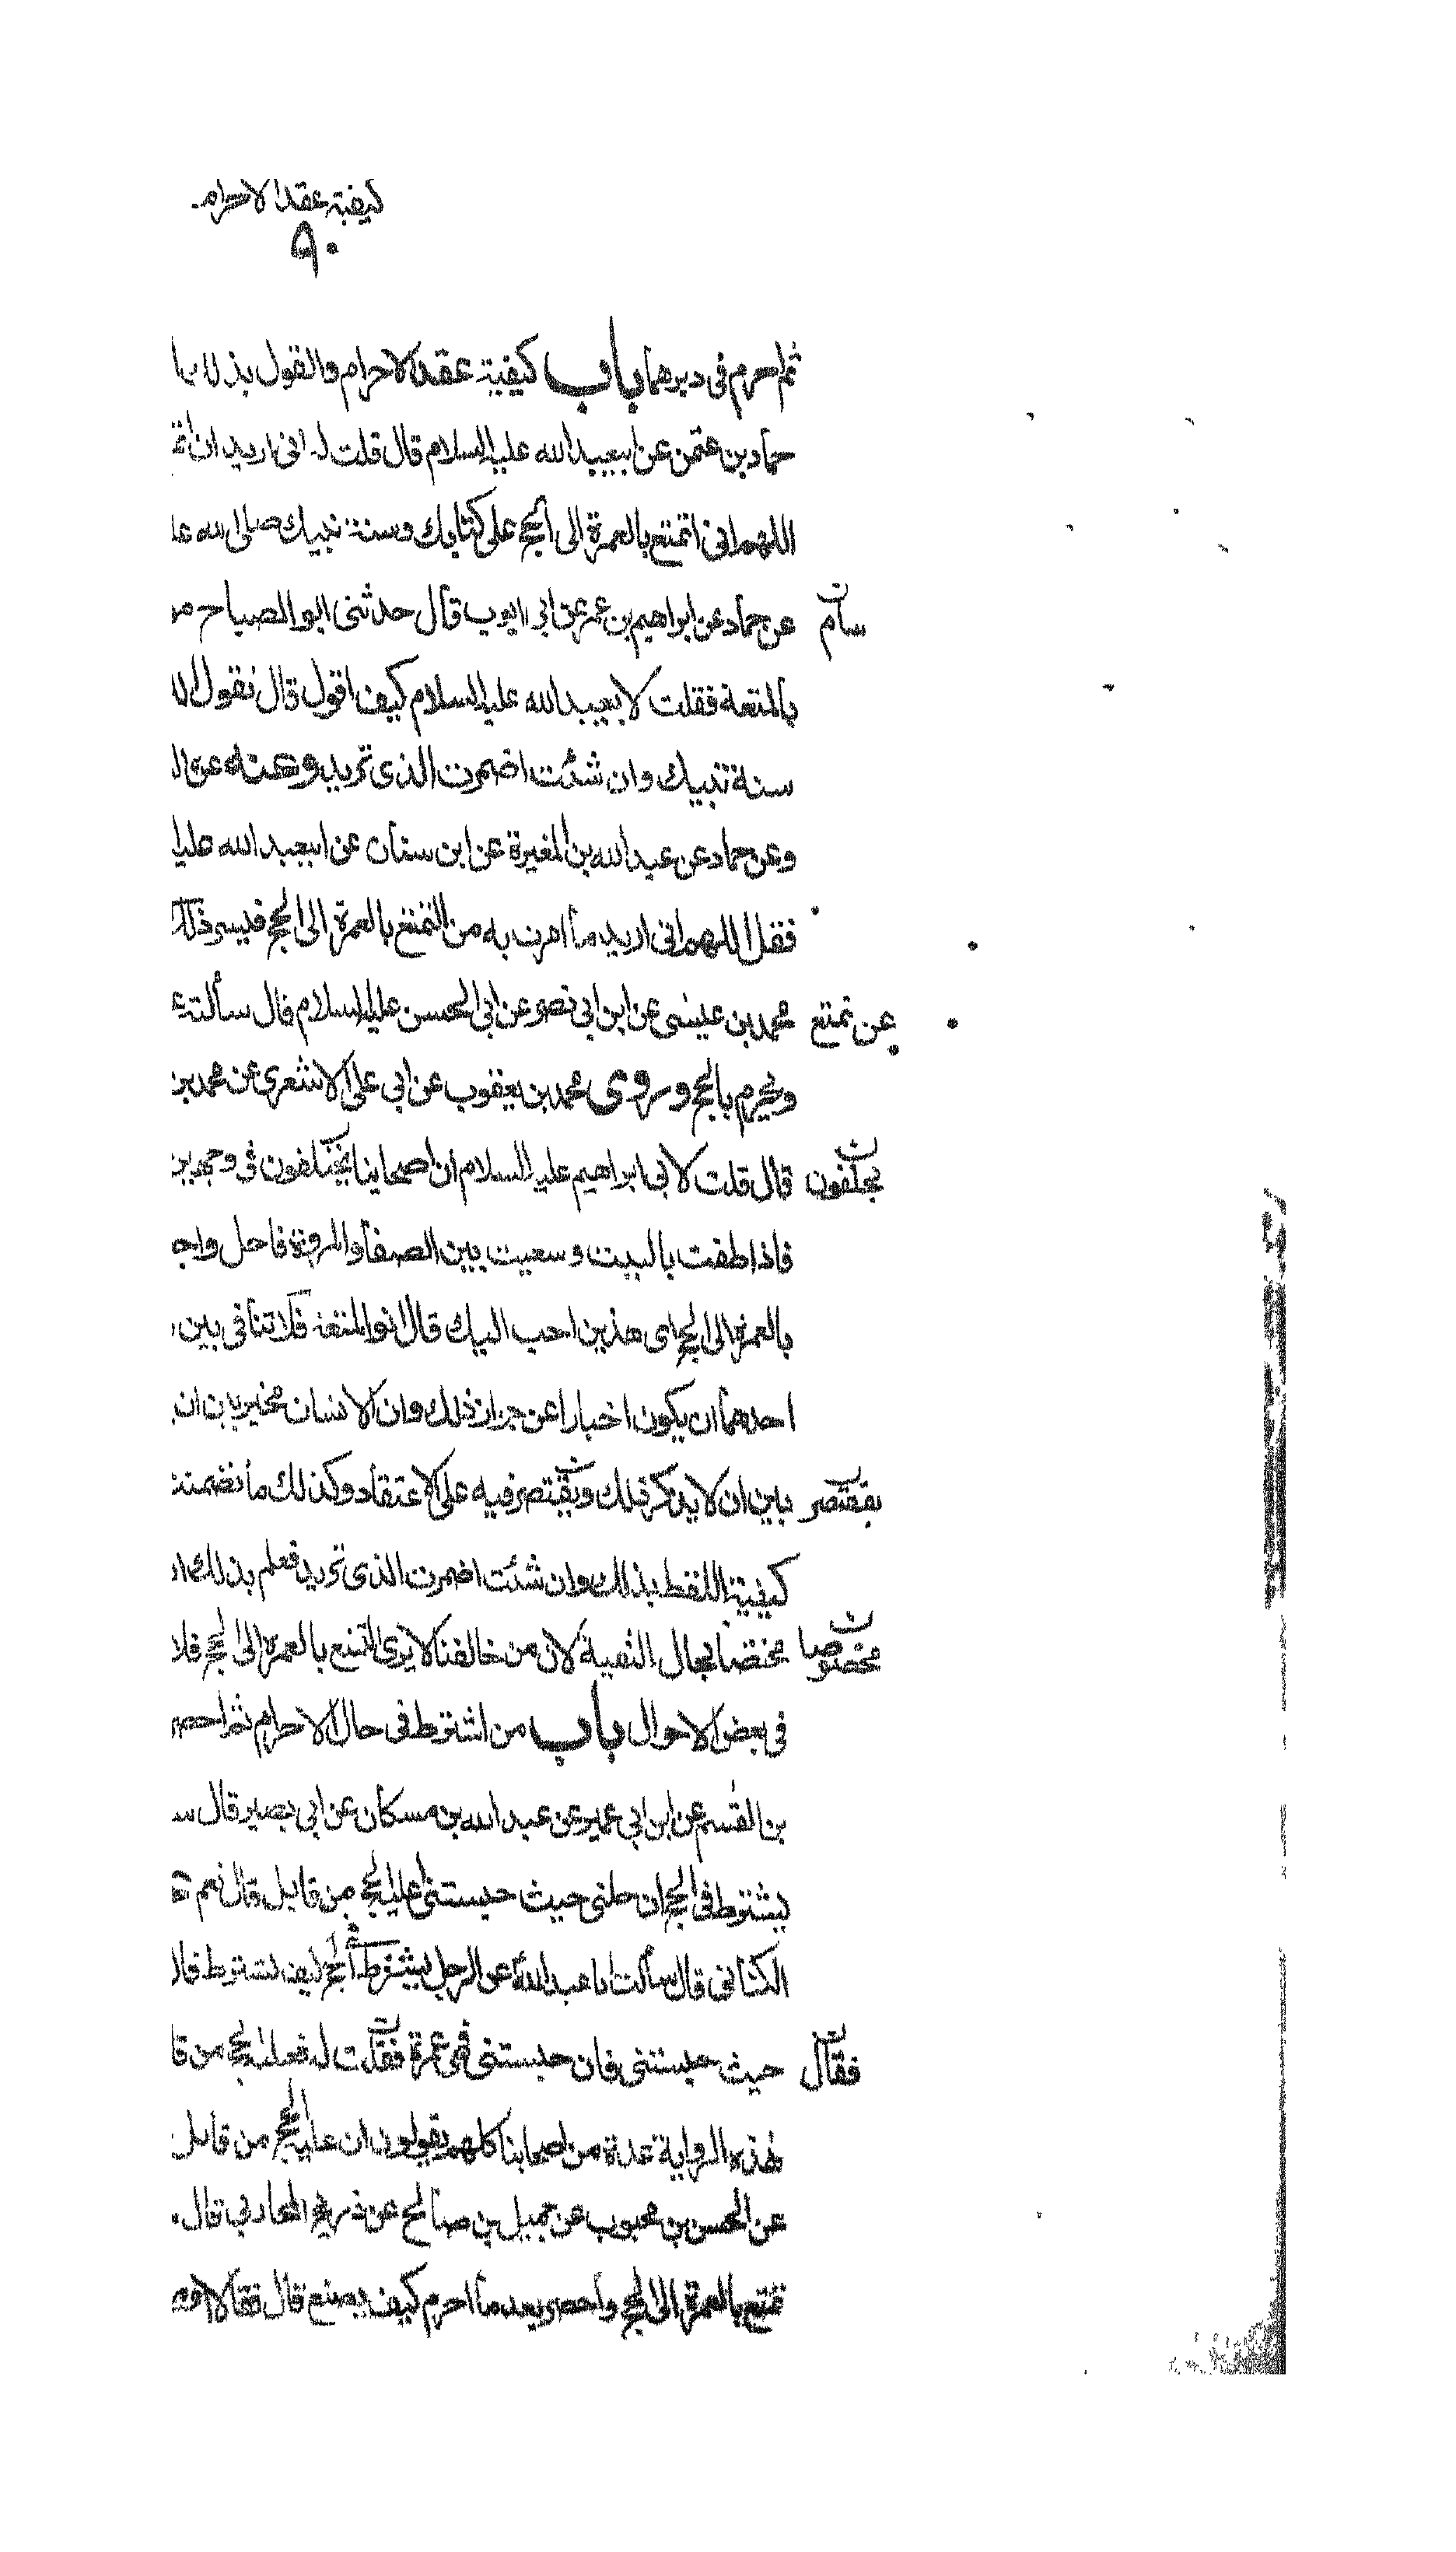 كيفية عقد الاحرام
٩٠
ثم احرم في دبرهما باب كيفية عقد الاحرام والقول بذلك
حماد بن عثمن عن ابيعبد الله عليه السلام قال قلت له اني اريد ان
اللهم اني اتمتع بالعمرة الى الحج على كتابك وسنة نبيك صلى الله
سام
عن حماد عن ابراهيم بن عمر عن ابي ايوب قال حدثني ابو الصباح
بالمتعة فقلت لابيعبد الله عليه السلام كيف اقول قال تقول
سنة نبيك وان شئت اضمرت الذي تريد وعنه عن
وعن حماد عن عبد الله بن المغيرة عن ابن سنان عن ابيعبد الله
فقل اللهم اني اريد ما امرت به من التمتع بالعمرة الى الحج فيسر ذلك
عن تمتع
محمد بن عيسى عن ابن ابي نصر عن ابي الحسن عليه السلام قال سألته
ويحرم بالحج وروى محمد بن يعقوب عن ابي على الاشعري عن محمد بن
يختلفون
قال قلت لابي ابراهيم عليه السلام ان اصحابنا يختلفون في وجهين
فاذا طفت بالبيت وسعيت بين الصفا والمروة فاحل
بالعمرة الى الحج اى هذين احب اليك قال انو المتعة فلا تنافى بين
احدهما ان يكون اخبارا عن جواز ذلك وان الانسان مخير بين ان
يقتصر
بين ان لا يذكر ذلك ويقتصر فيه على الاعتقاد وكذلك ما تضمنته
كيفية اللفظ بذلك وان شئت اضمرت الذي تريد فعلم بذلك
مخصوصا
مختصا بحال التقية لان من خالفنا لا يرى التمتع بالعمرة الى الحج فلا
في بعض الاحوال باب من اشترط في حال الاحرام ثم احصر
بن القسم عن ابن ابي عمير عن عبد الله بن مسكان عن ابي بصير قال
يشترط في الحج ان حلني حيث حبستني أعليه الحج من قابل قال نعم
الكناني قال سألت ابا عبد الله عن الرجل يشترط في الحج كيف يشترط قال
فقال
حيث حبستني فان حبستني فهى عمرة فقلت له فعليه الحج من
هذه الرواية عدة من اصحابنا كلهم يقولون ان عليه الحج من قابل
عن الحسن بن محبوب عن جميل بن صالح عن ذريح المحاربي قال
تمتع بالعمرة الى الحج وأحصر بعد ما احرم كيف يصنع قال فقال